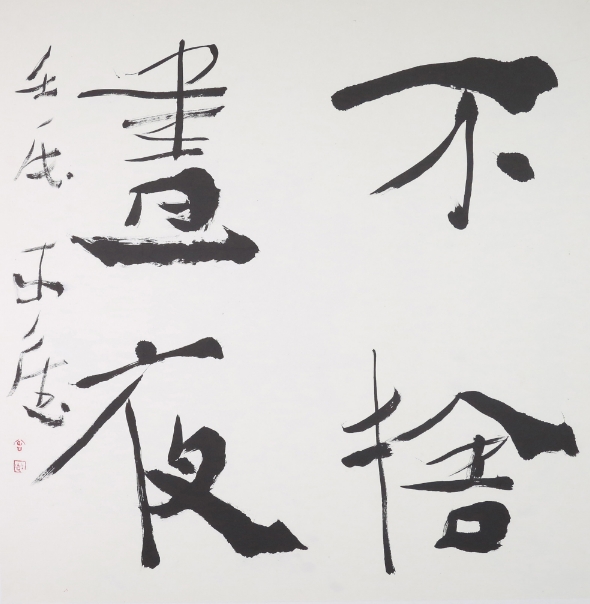 不捨
晝夜
壬戌